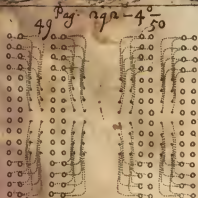 Pag. 292-4º
49 50